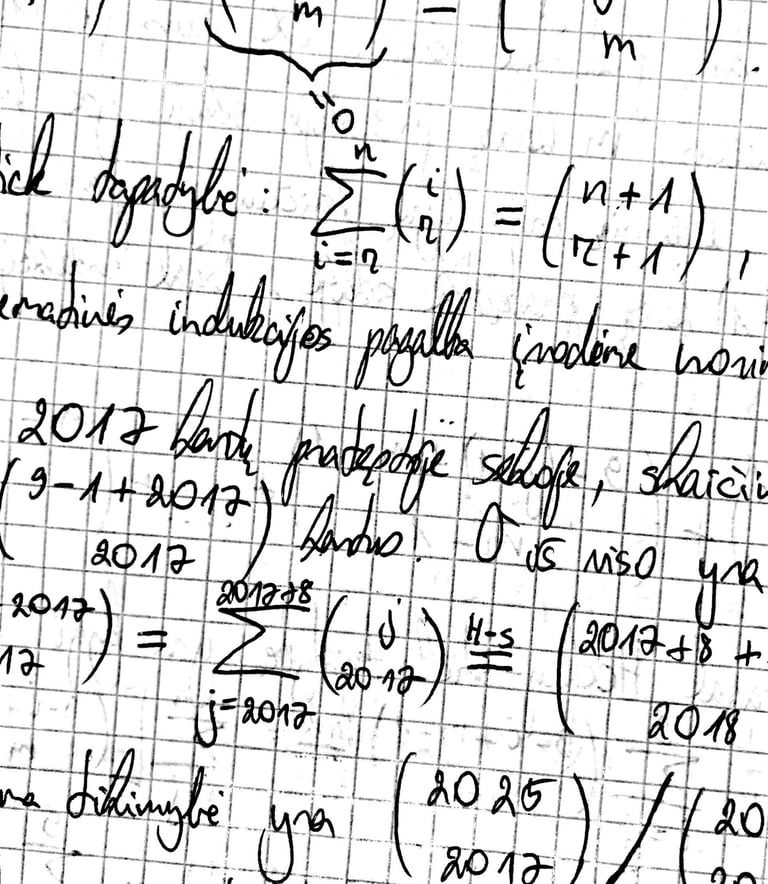 m ) − ( m ) .
"0
ick tapatybė: n ∑ i=r ( i r ) = ( n+1 r+1 ) ,
ematinės indukcijos pagalba įrodėme
2017 kartų pradėtoje sekoje,
( 9−1+2017 2017 ) kartus. O iš viso yra
2017 17 ) = 2017+8 ∑ j=2017 ( j 2017 ) H-S = ( 2017+8 + 2018
na tikimybė yra ( 2025 2017 ) / ( 20